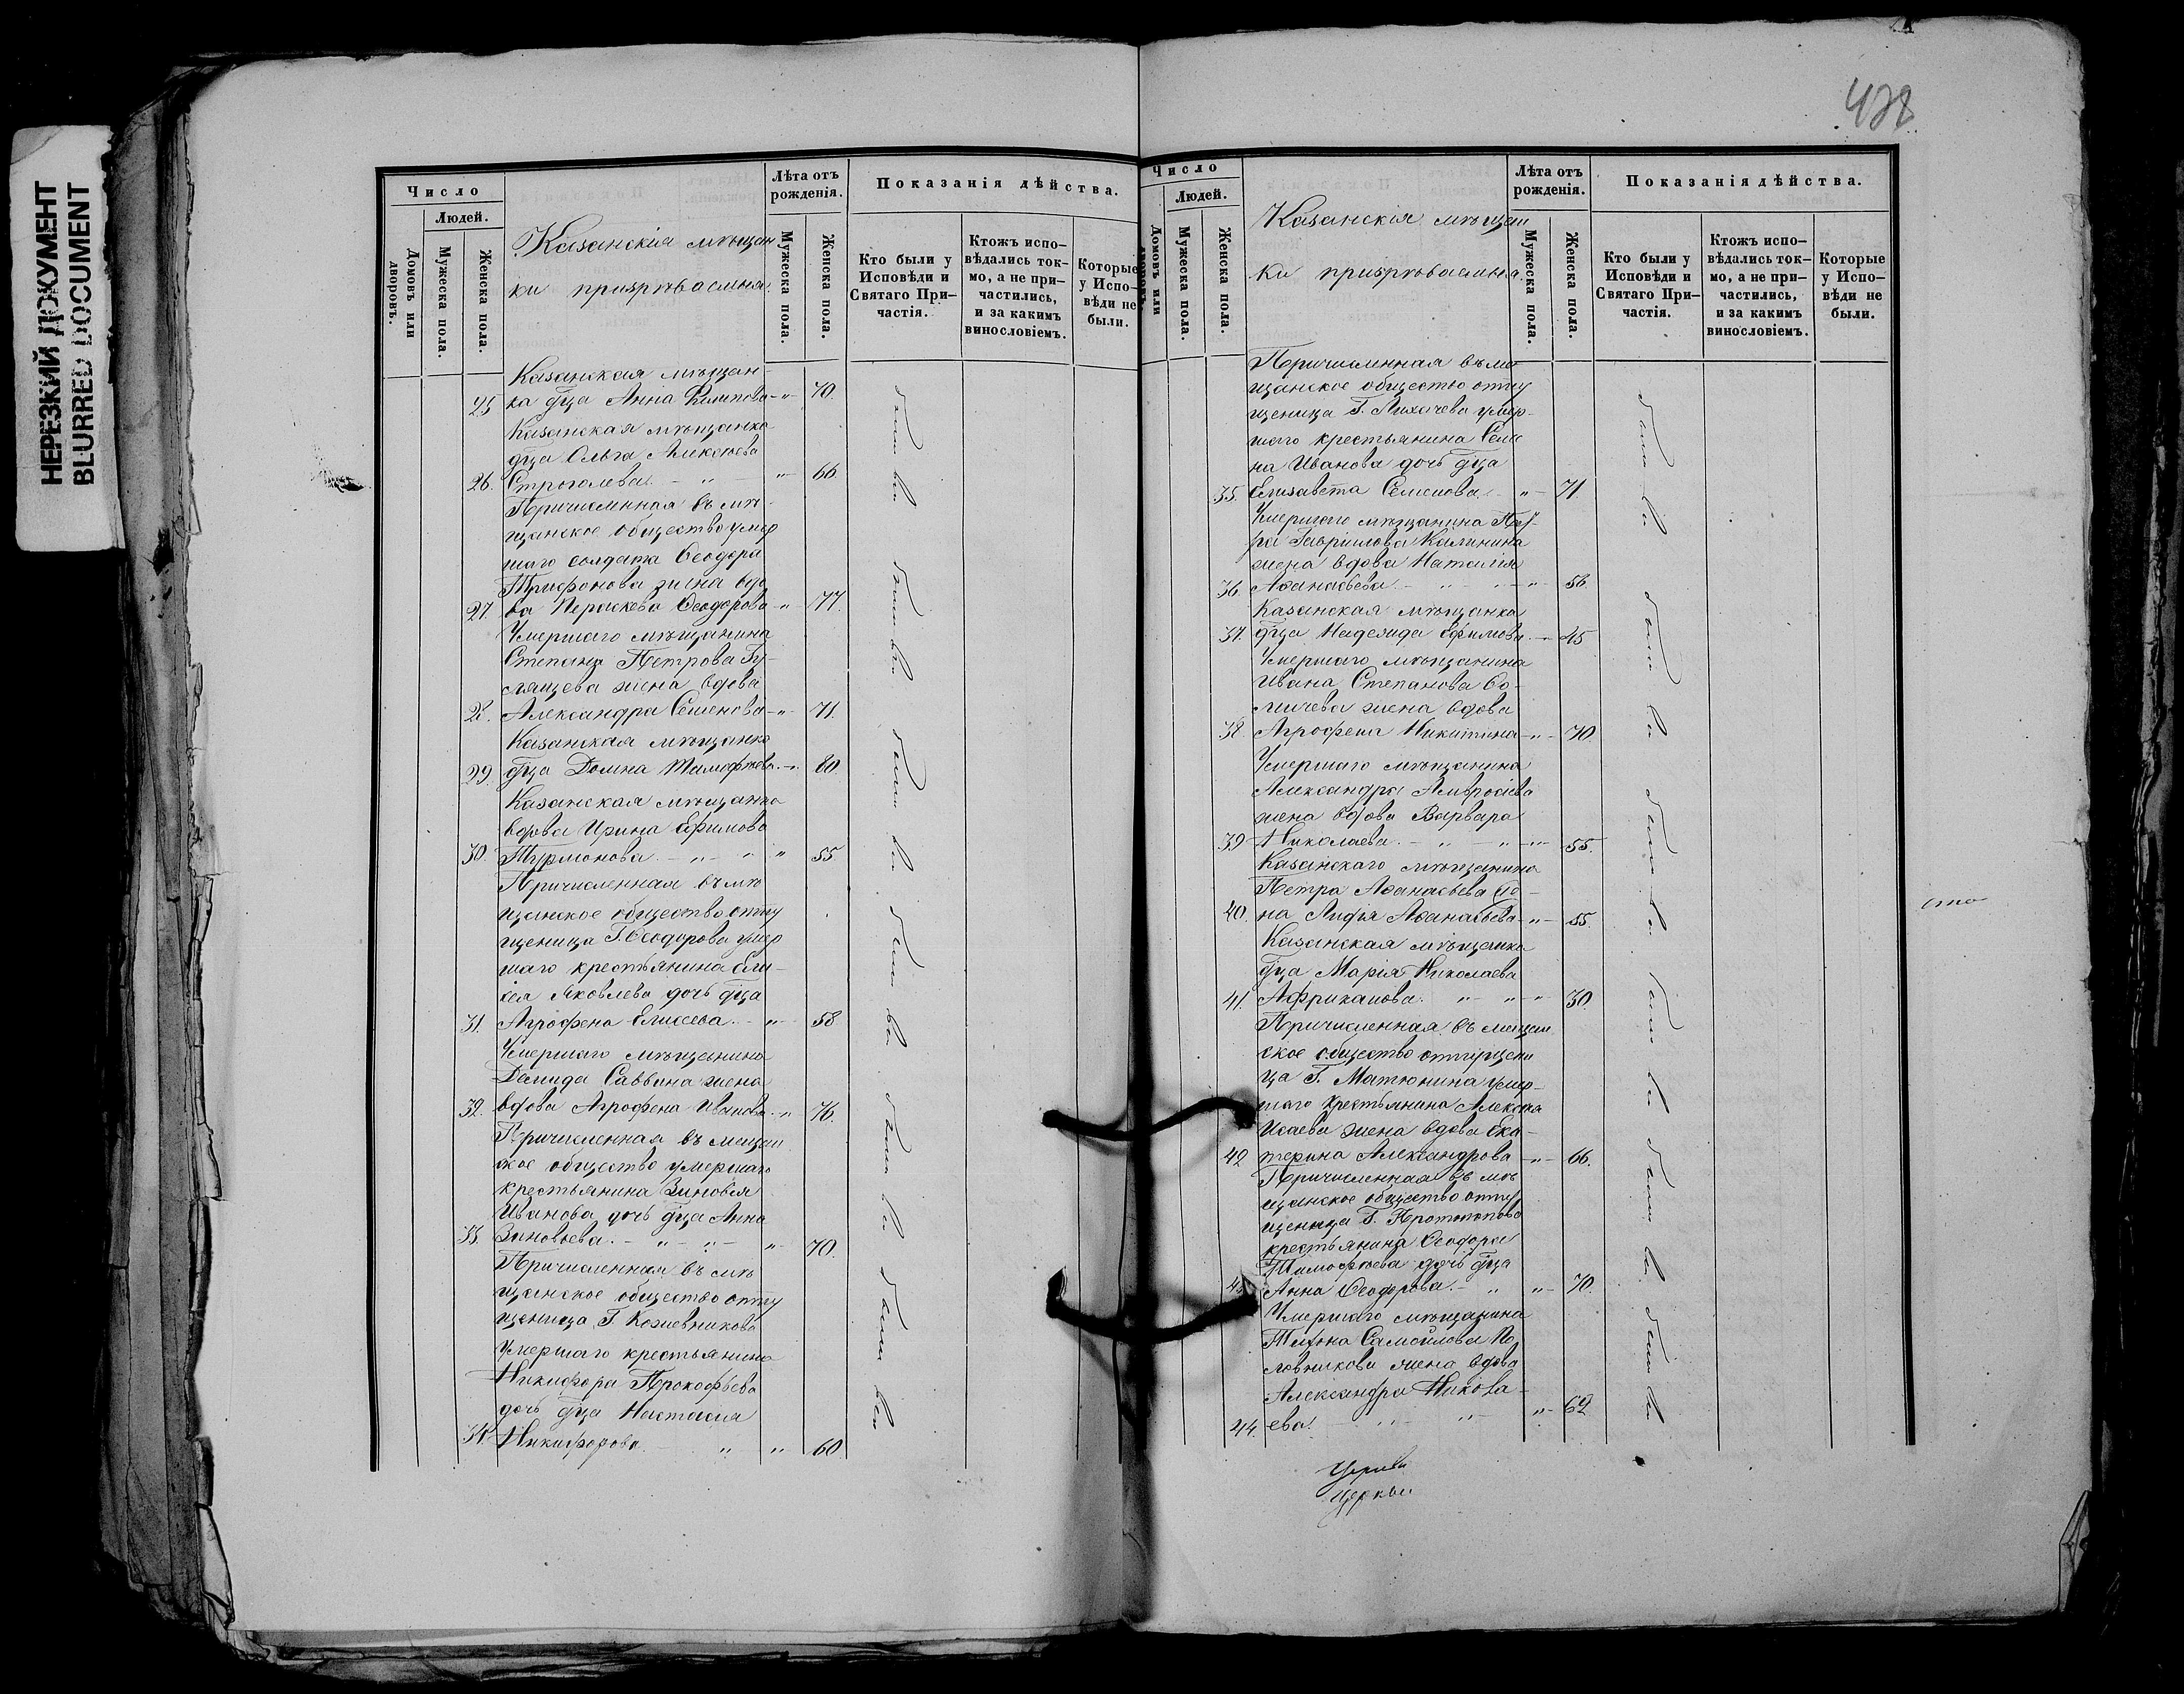 НЕРЕЗКИЙ ДОКУМЕНТ
BLURRED DOCUMENT
Число
Людей.
Домовъ или дворовъ.
Мужеска пола.
Женска пола.
Казанскія мѣщан
ки призрѣваемыя
Лѣта отъ рожденія.
Мужеска пола.
Женска пола.
Показанія дѣйства.
Кто были у Исповѣди и Святаго При-частія.
Ктожъ испо-вѣдались ток-мо, а не при-частились, и за какимъ винословіемъ.
Которые у Испо-вѣди не были.
Казанская мѣщан-
25 ка дѣца Анна Филипова -"- 70.
Казанская мѣщанка
дѣца Ольга Алексѣева
26. Строголева. - " - " - 66.
Причисленная въ мѣ-
щанское общество умер
шаго солдата Ѳеодора
Трифонова жена вдо
27. ва Параскева Ѳеодорова -" 77.
Умершаго мѣщанина
Степана Петрова Гу-
слящева жена вдова
28. Александра Семенова -"- 71.
Казанская мѣщанка
29. дѣца Домна Тимофѣева. -". 80.
Казанская мѣщанка
вдова Ирина Ефимова
30. Турманова. - " - " " 55
Причисленная въ мѣ
щанское общество отпу
щеница Г. Ѳеодорова умер
шаго крестьянина Ели-
сея Яковлева дочь дѣца
31. Агрофена Елисеева. - " - 58
Умершаго мѣщанина
Демида Саввина жена
32. вдова Агрофена Иванова. " 76.
Причисленная въ мещан
ское общество умершаго
крестьянина Зиновья
Иванова дочь дѣца Анна
33. Зиновьева. - " - " - " - 70.
Причисленная въ мѣ
щанское общество отпу
щеница Г. Кожевникова
умершаго крестьянина
Никифора Прокофьева
дочь дѣца Настасія
34. Никифорова " " 60
428
Число
Людей.
Домовъ или дворовъ.
Мужеска пола.
Женска пола.
Казанскія мѣщан
ки призрѣваемыя.
Лѣта отъ рожденія.
Мужеска пола.
Женска пола.
Показанія дѣйства.
Кто были у Исповѣди и Святаго При-частія.
Ктожъ испо-вѣдались ток-мо, а не при-частились, и за какимъ винословіемъ.
Которые у Испо-вѣди не были.
Причисленная въ мѣ
щанское общество отпу
щеница Г. Лихачева умер-
шаго крестьянина Семе
на Иванова дочь дѣца
35. Елизавета Семенова. " - 71
Умершаго мѣщанина
Гаврилова Калинина
жена вдова Наталія
36. Аѳанасьева. - " - " - 56.
Казанская мѣщанка
37. дѣца Надежда Ефимова. - 45
Умершаго мѣщанина
Ивана Степанова
жена вдова
38. Агрофена Никитина -"- 70.
Умершаго мѣщанина
Александра Амвросіева
жена вдова Варвара
39 Николаева. - " - " - 55.
Казанскаго мѣщанина
Петра Аѳанасьева же-
40. на Лидія Аѳанасьева -"- 55.
Казанская мѣщанка
дѣца Марія Николаева
41. Африканова. " - " - " 30.
Причисленная въ мещан
ское общество отпущени
ца Г. Матюнина умер-
шаго крестьянина Алексѣя
Исаева жена вдова Ека-
42 терина Александрова -"- 66.
Причисленная въ мѣ
щанское общество отпу
щеница Г. Протопопова
крестьянина Ѳеодора
Тимофѣева дочь дѣца
43. Анна Ѳеодорова. - " " - 70.
Умершаго мѣщанина
Самойлова По
ловникова жена вдова
Александра Никола-
44. ева. " - " - " - 62
Церкви
Церкви